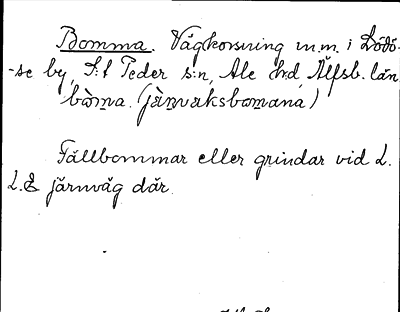 Bomma. Vägkorsning m.m. i Lödö-
-se by, S:t Peder s:n, Ale h:d Älfsb. län
bòm̥a. (jæ̀ɳvaksbomana)
Fällbommar eller grindar vid L.
L. & järnväg där.